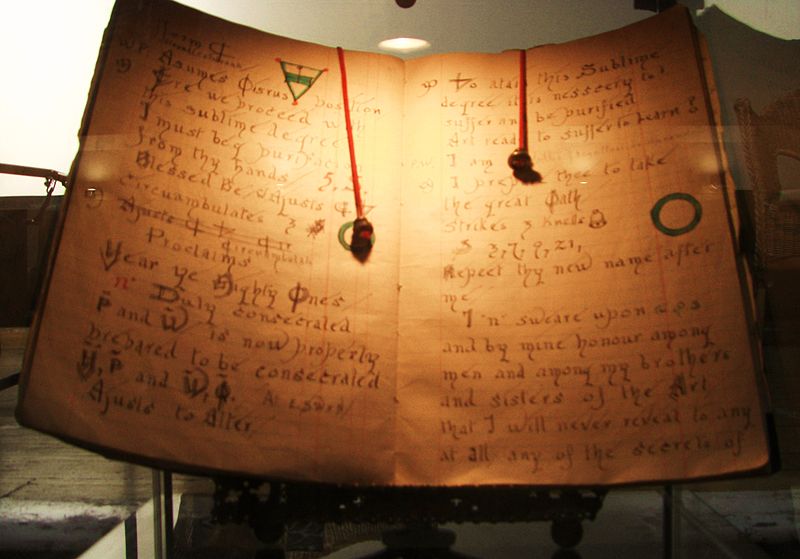 Form
W.P. Asumes Osirus position
Erel we proceed with
this sublime degree
I must beg purification
from thy hands
Blessed Be
Circumbulates 3
Proclaims
Hear ye Mighty Ones
"n" Duly consecrated
P and W is now properly
prepared to be consecrated
H, P and W,
Ajusts to Alter,
To atain this Sublime
degree it is nessecry to
suffer and be purified
Art ready to suffer to Learn
I am
I prepare thee to take
the great Oath
strikes 3 Knells
3, 7, 9, 21,
Repeet thy new name after
me
I "n" sweare upon
and by mine honour among
men and among my brothers
and sisters of the Art
that I will never reveal to any
at all any of the secrets of